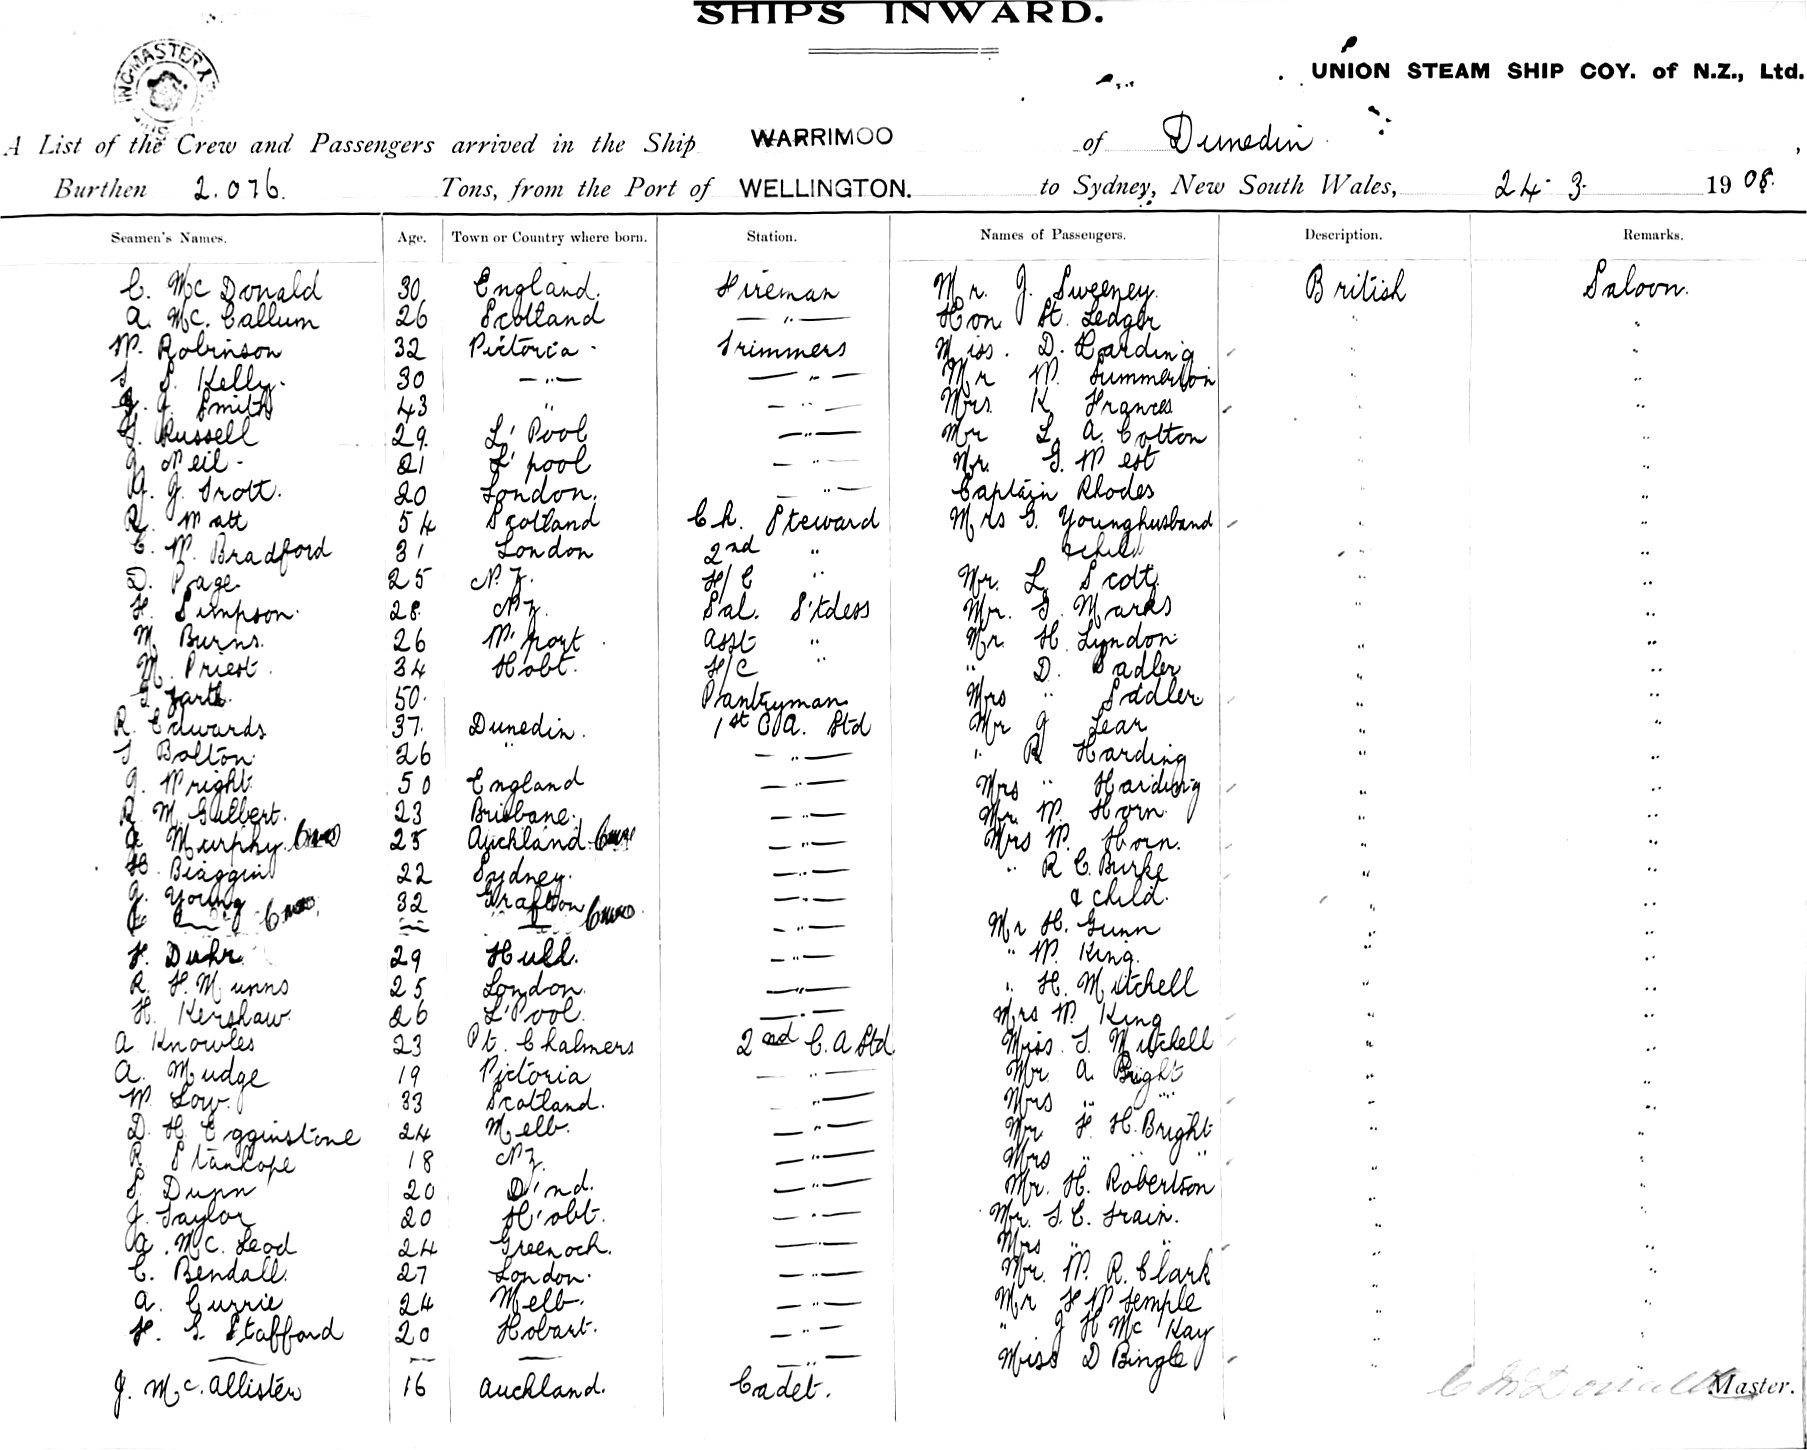 SHIPS INWARD.
UNION STEAM SHIP COY. of N.Z., Ltd.
A List of the Crew and Passengers arrived in the Ship WARRIMOO of Dunedin
Burthen 2.076. Tons, from the Port of WELLINGTON. to Sydney, New South Wales, 24-3- 1908.
Seamen's Names. Age. Town or Country where born. Station. Names of Passengers. Description. Remarks.
C. McDonald 30 England. Fireman Mr. J. Sweeney. British Saloon.
A. Mc. Callum 26 Scotland —"— Hon St. Ledger " "
W. Robinson 32 Victoria - Trimmers Miss. D. Harding " "
S. Kelly. 30 —"— —"— Mr W. Summerton " "
J. Smith 43 " —"— Mrs K Frances " "
Russell 29. L'Pool —"— Mr L. A. Colton " "
Neil - 21 L'pool —"— Mr. G. West " "
J. Trott. 20 London. —"— Captain Rhodes " "
R. Watt 54 Scotland Ch. Steward Mrs G. Younghusband " "
C. W. Bradford 31 London 2nd " & child " "
D. Page 25 N.Z. F/C " Mr. L. Scott " "
H. Simpson. 28. N.Z. Sal. S'tdess Mr. G. Marks " "
M. Burns. 26 W. port Asst " Mr. H. Lyndon " "
M. Priest. 34 Hobt. F/C " " D. Sadler " "
G. Garth. 50. Pantryman Mrs " Sadler " "
R. Edwards 37. Dunedin. 1st C. A. Std Mr J Lear " "
T Bolton 26 " —"— " R Harding " "
J. Wright 50 England —"— Mrs " Harding " "
R. M. Gilbert. 23 Brisbane. —"— Mr. W. Horn " "
Murphy. 25 Auckland —"— Mrs W. Horn. " "
H. Biaggini 22 Sydney. —"— " R C. Burke " "
J. Young 32 Grafton —"— & child. " "
—"— Mr H. Gunn " "
F. Duhr 29 Hull. —"— " W. King. " "
R. H. Munns 25 London. —"— " H. Mitchell " "
H. Kershaw. 26 L'Pool. —"— Mrs W. King " "
A Knowles 23 Pt. Chalmers 2nd C. A Std Miss. S. Mitchell " "
A. Mudge 19 Victoria —"— Mr. A. Bright " "
W. Low. 33 Scotland. —"— Mrs " " " "
D. H. Egginstone 24 Melb. —"— Mr F. H. Bright " "
R. Stanhope 18 N.Z. —"— Mrs " " " "
S. Dunn 20 D'nd. —"— Mr. H. Robertson " "
J. Taylor 20 H'obt. —"— Mr. S. C. Train. " "
A. Mc. Leod 24 Greenock. —"— Mrs " " " "
C. Bendall. 27 London. —"— Mr. W. R. Clark " "
A. Currie 24 Melb. —"— Mr F W Temple " "
F. G. Stafford 20 Hobart. —"— " J H Mc Kay " "
—"— Miss D Bingle " "
J. Mc. Allister 16 Auckland. Cadet. C McDonald Master.